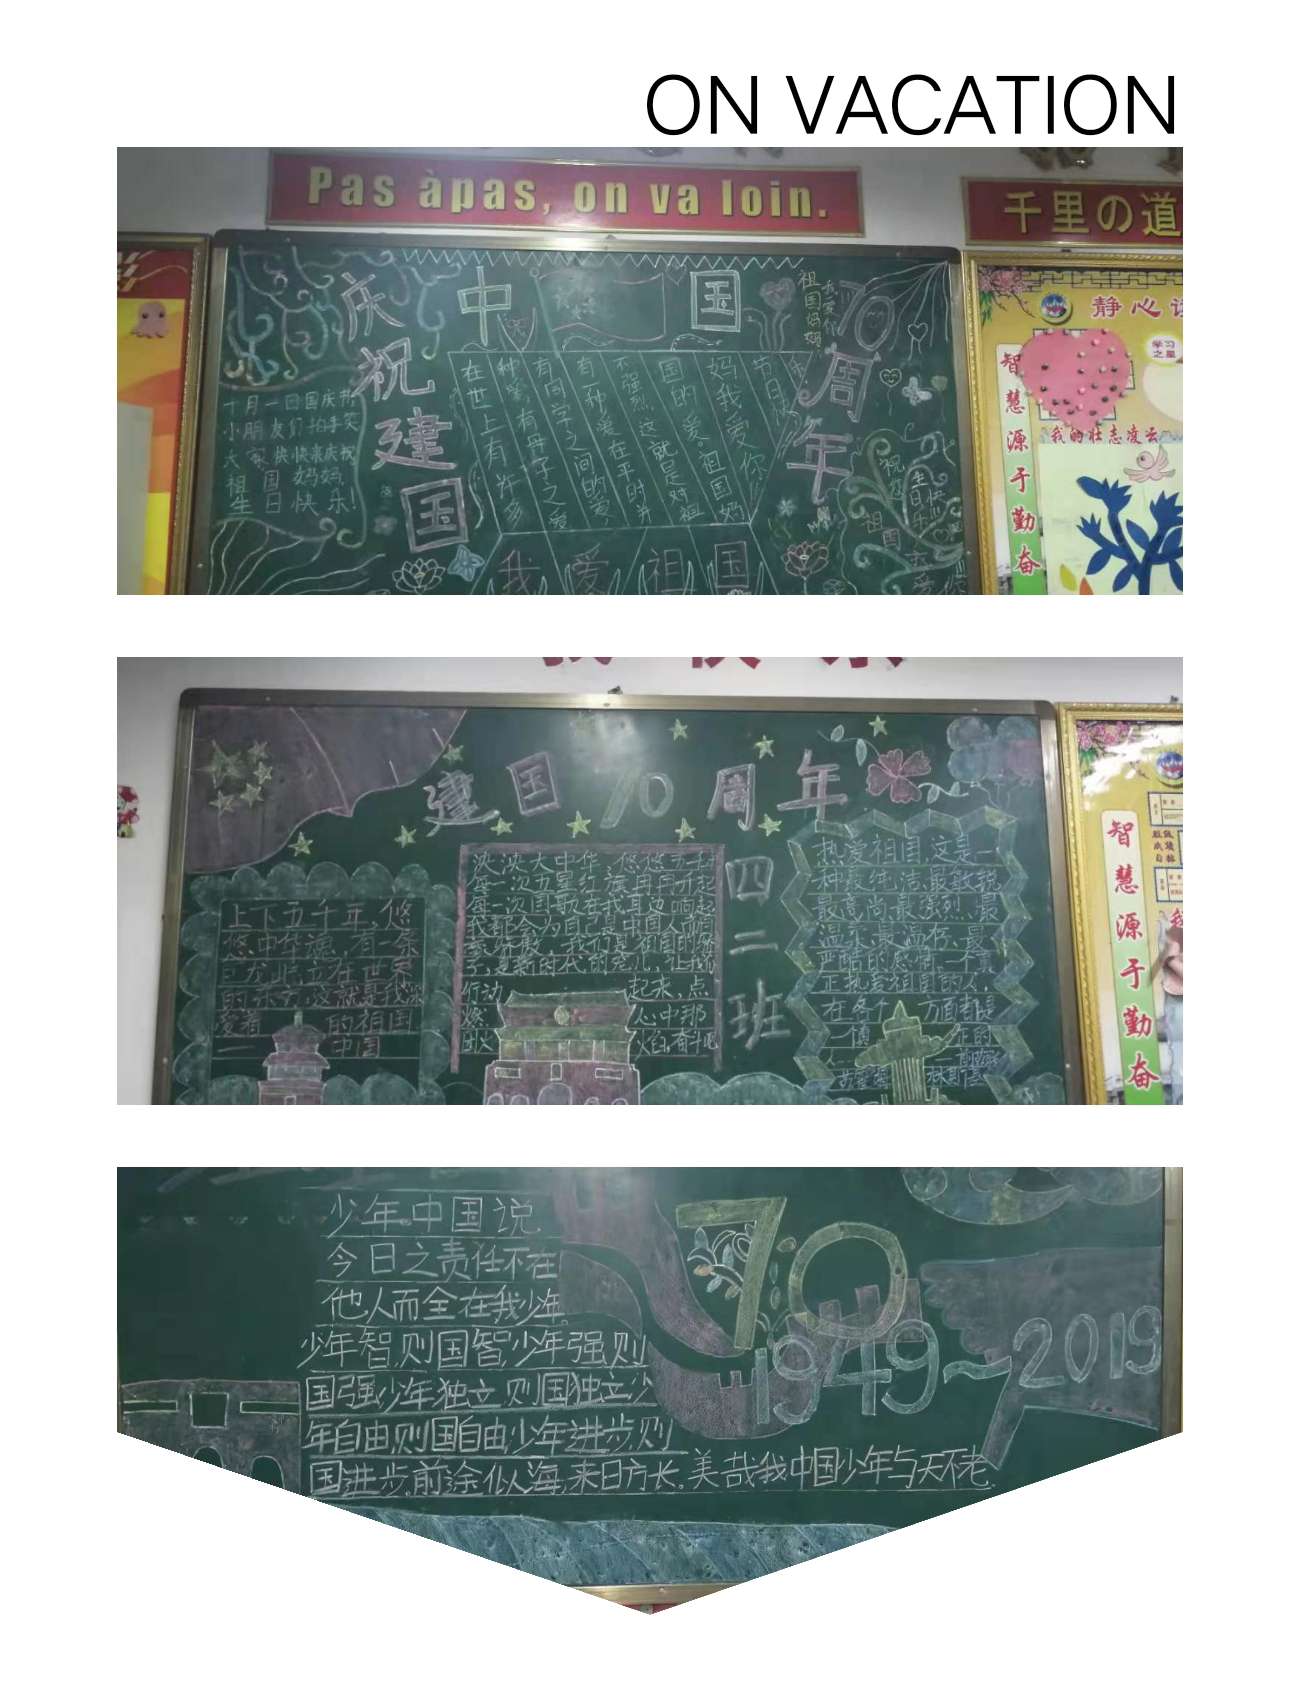 ON VACATION
Pas àpas, on va loin.
千里の道
庆祝建国
中国
70周年
祖国妈妈
我爱你
十月一日国庆节
小朋友们拍手笑
大家快快来庆祝
祖国妈妈
生日快乐!
在世上有许多
种爱,有母子之爱
有同学之间的爱,
有一种爱在平时并
不强烈,这就是对祖
国的爱,祖国妈
妈我爱你
我爱祖国
静心
学习
之星
智慧源于勤奋
我的壮志凌云
建国70周年
四二班
上下五千年,悠
悠中华魂,有一条
巨龙屹立在世界
的东方,这就是我深
爱着的祖国
——中国
泱泱大中华,悠悠五千
每一次五星红旗冉冉升起
每一次国歌在我耳边响起
我都会为自己是中国人而
行动起来,点
燃心中那
团火焰,奋斗吧
热爱祖国,这是一
种最纯洁、最敏锐
最高尚、最强烈、最
温柔、最温存、最
严酷的感情。一个真
正热爱祖国的人,
在各个方面都是
一个真正的人
智慧源于勤奋
少年中国说
今日之责任不在
他人而全在我少年。
少年智,则国智,少年强,则
国强,少年独立,则国独立,少
年自由,则国自由,少年进步,则
国进步。前途似海,来日方长。美哉我中国少年与天不老
70
1949~2019